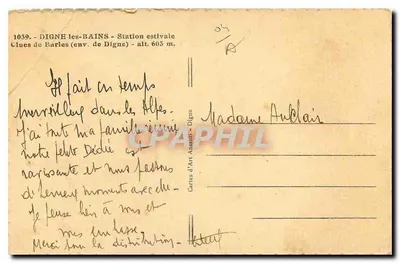 1039. - DIGNE-les-BAINS - Station estivale
Clues de Barles (env. de Digne) - alt. 605 m.
04
A
Il fait un temps
merveilleux dans les Alpes.
J'ai tout ma famille réunie
notre petite Dédée est
ravissante et nous passons
d'heureux moments avec elle.
Je pense bien à vous et
vous embrasse.
Merci pour la distribution.
Madame AuClair
Cartes d'Art - Digne
CPARAMA